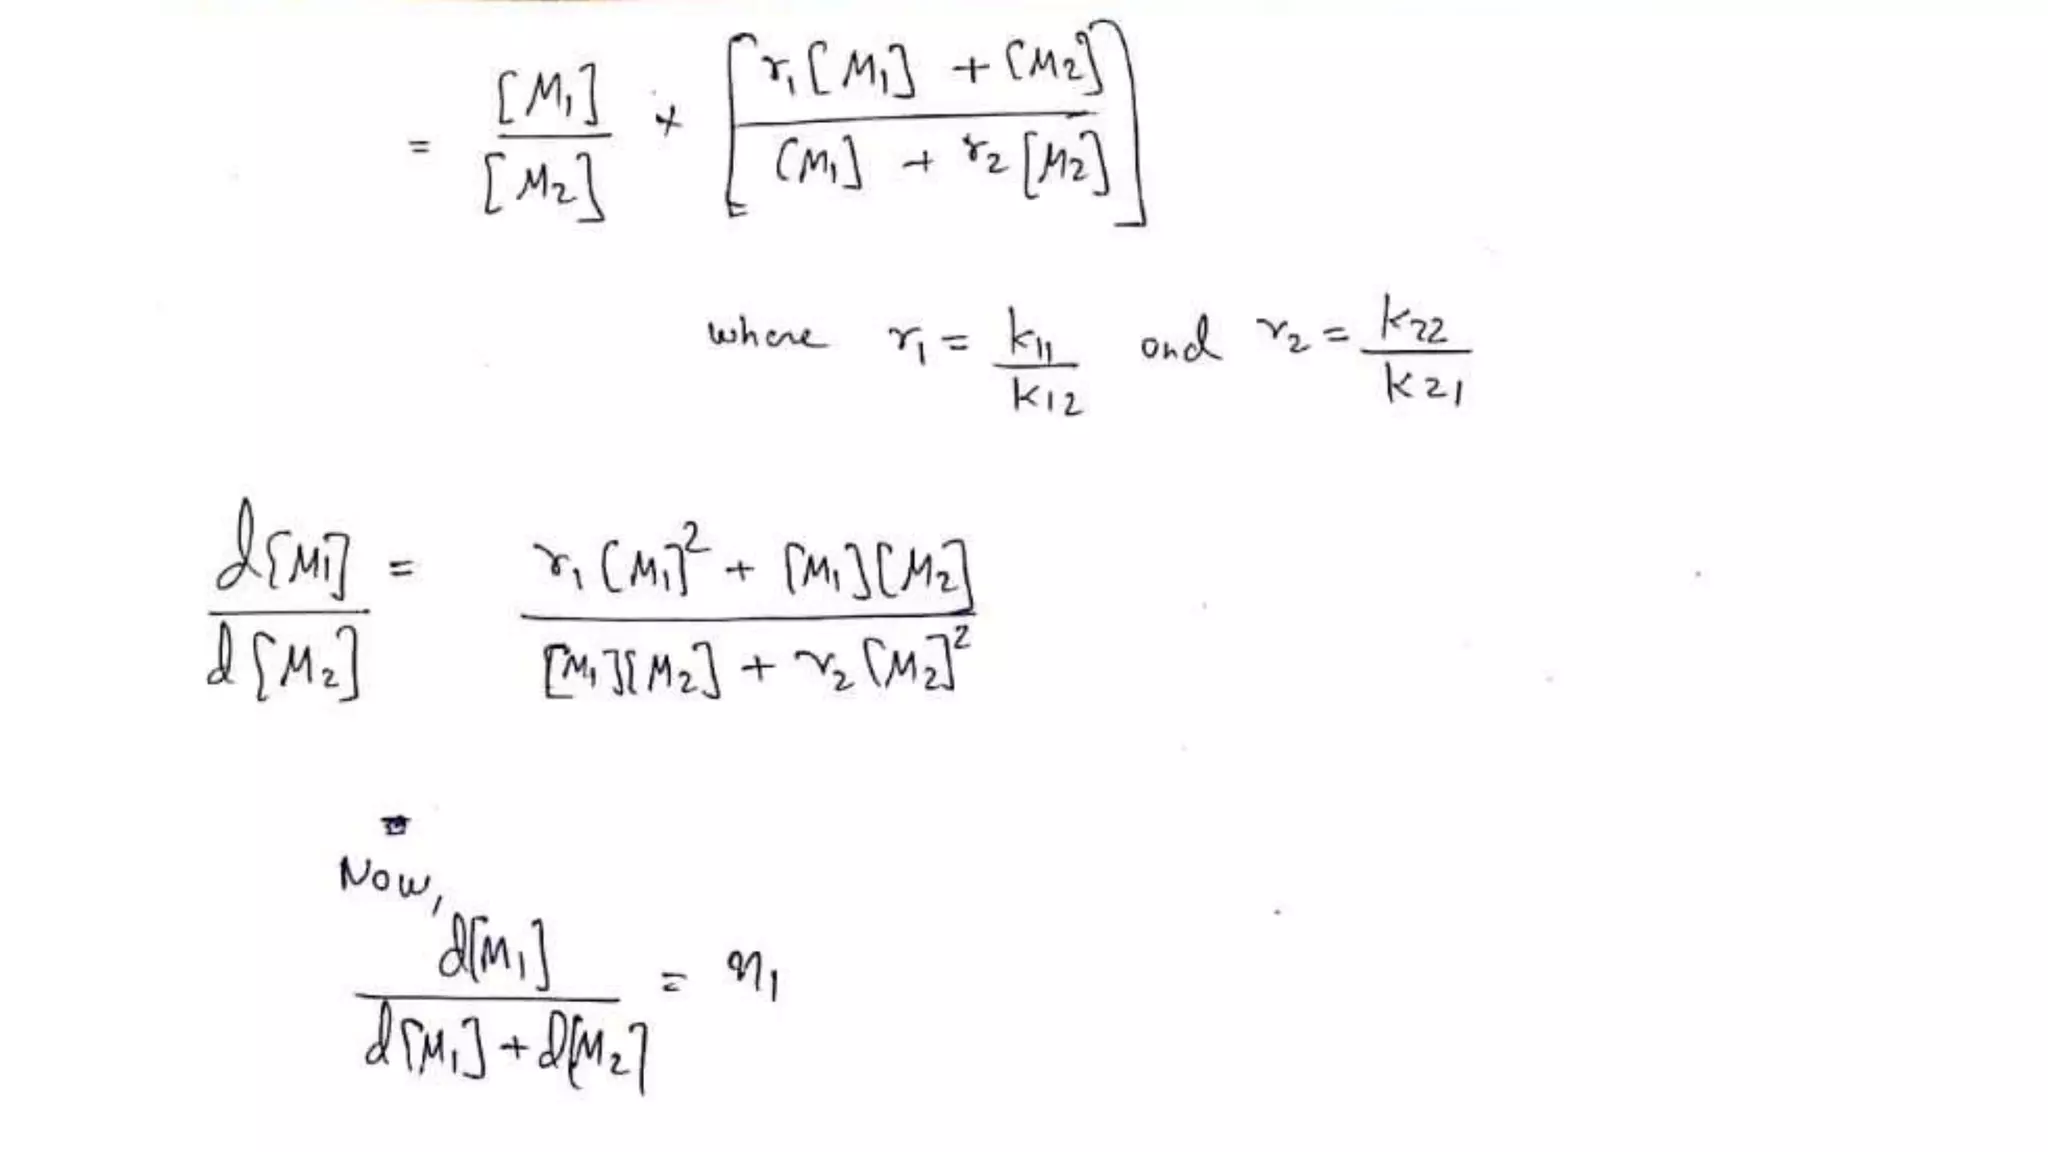 = [M₁]/[M₂] × [(r₁[M₁] + [M₂])/([M₁] + r₂[M₂])]
where r₁ = k₁₁/k₁₂ and r₂ = k₂₂/k₂₁
d[M₁]/d[M₂] = (r₁[M₁]² + [M₁][M₂])/([M₁][M₂] + r₂[M₂]²)
Now,
d[M₁]/(d[M₁] + d[M₂]) = n₁